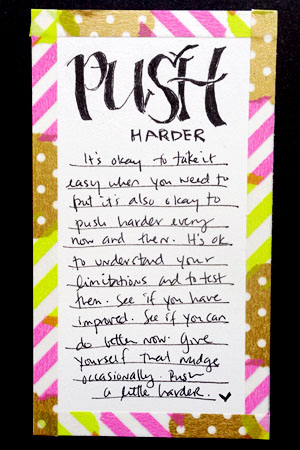 PUSH
HARDER
It's okay to take it
easy when you need to
but it's also okay to
push harder every
now and then. It's ok
to understand your
limitations and to test
them. See if you have
improved. See if you can
do better now. Give
yourself that nudge
occasionally. Push
a little harder.